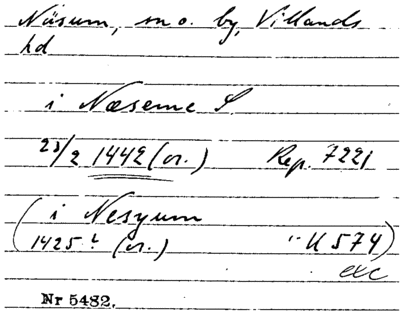 Näsum, sn o. by, Villands
hd
i Næseme S.
23/2 1442 (or.) Rep. 7221
(i Nesyum
1425 ? (or.) " U 574)
etc
Nr 5482.